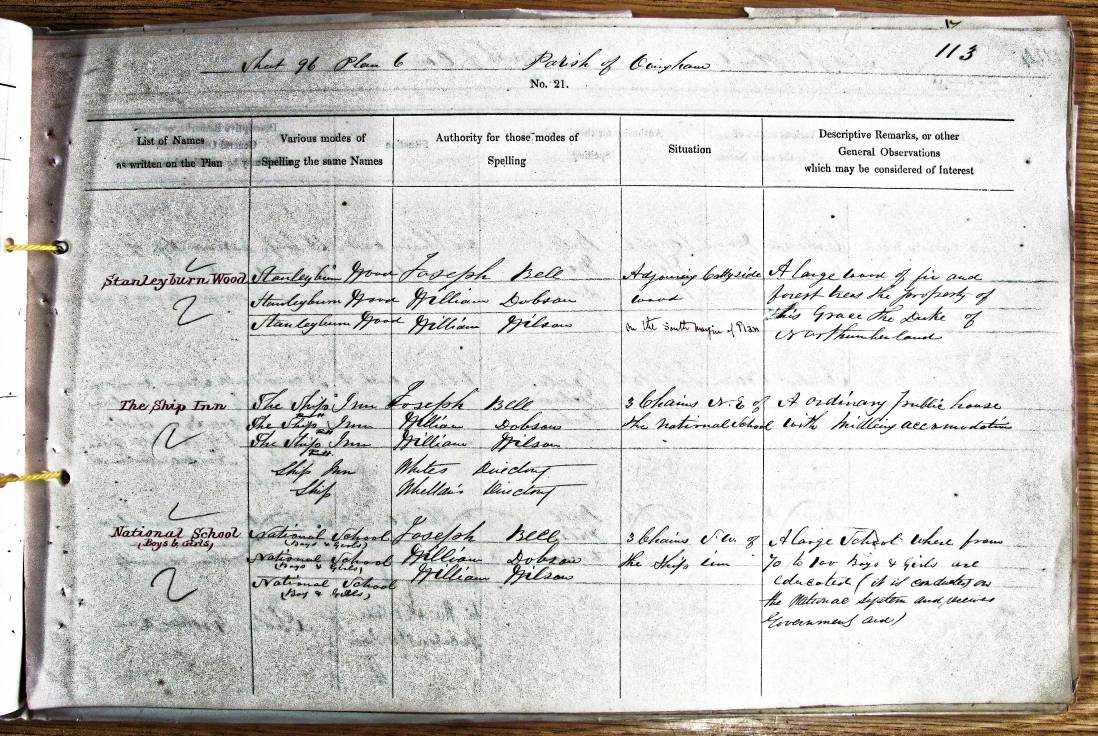 113
Sheet 96 Plan 6 Parish of Ovingham
No. 21.
List of Names
as written on the Plan
Various modes of
Spelling the same Names
Authority for those modes of
Spelling
Situation
Descriptive Remarks, or other
General Observations
which may be considered of Interest
Stanleyburn Wood
2
Stanleyburn Wood
Stanleyburn Wood
Stanleyburn Wood
Joseph Bell
William Dobson
William Wilson
Adjoining Collyside
wood
on the South margin of Plan
A large wood of fir and
forest trees the property of
His Grace the Duke of
Northumberland
The Ship Inn
2
The Ship Inn
The Ship Inn
The Ship Inn
Ship Inn
Ship
Joseph Bell
William Dobson
William Wilson
Whites Directory
Whellan's Directory
3 Chains N.E of
the National School
A ordinary public house
with midling accomodation
National School
(Boys & Girls)
2
National School
(Boys & Girls)
National School
(Boys & Girls)
National School
(Boys & Girls)
Joseph Bell
William Dobson
William Wilson
3 Chains S.W. of
the Ship inn
A large School where from
70 to 100 Boys & Girls are
educated (it is conducted on
the National System and receives
Government aid)